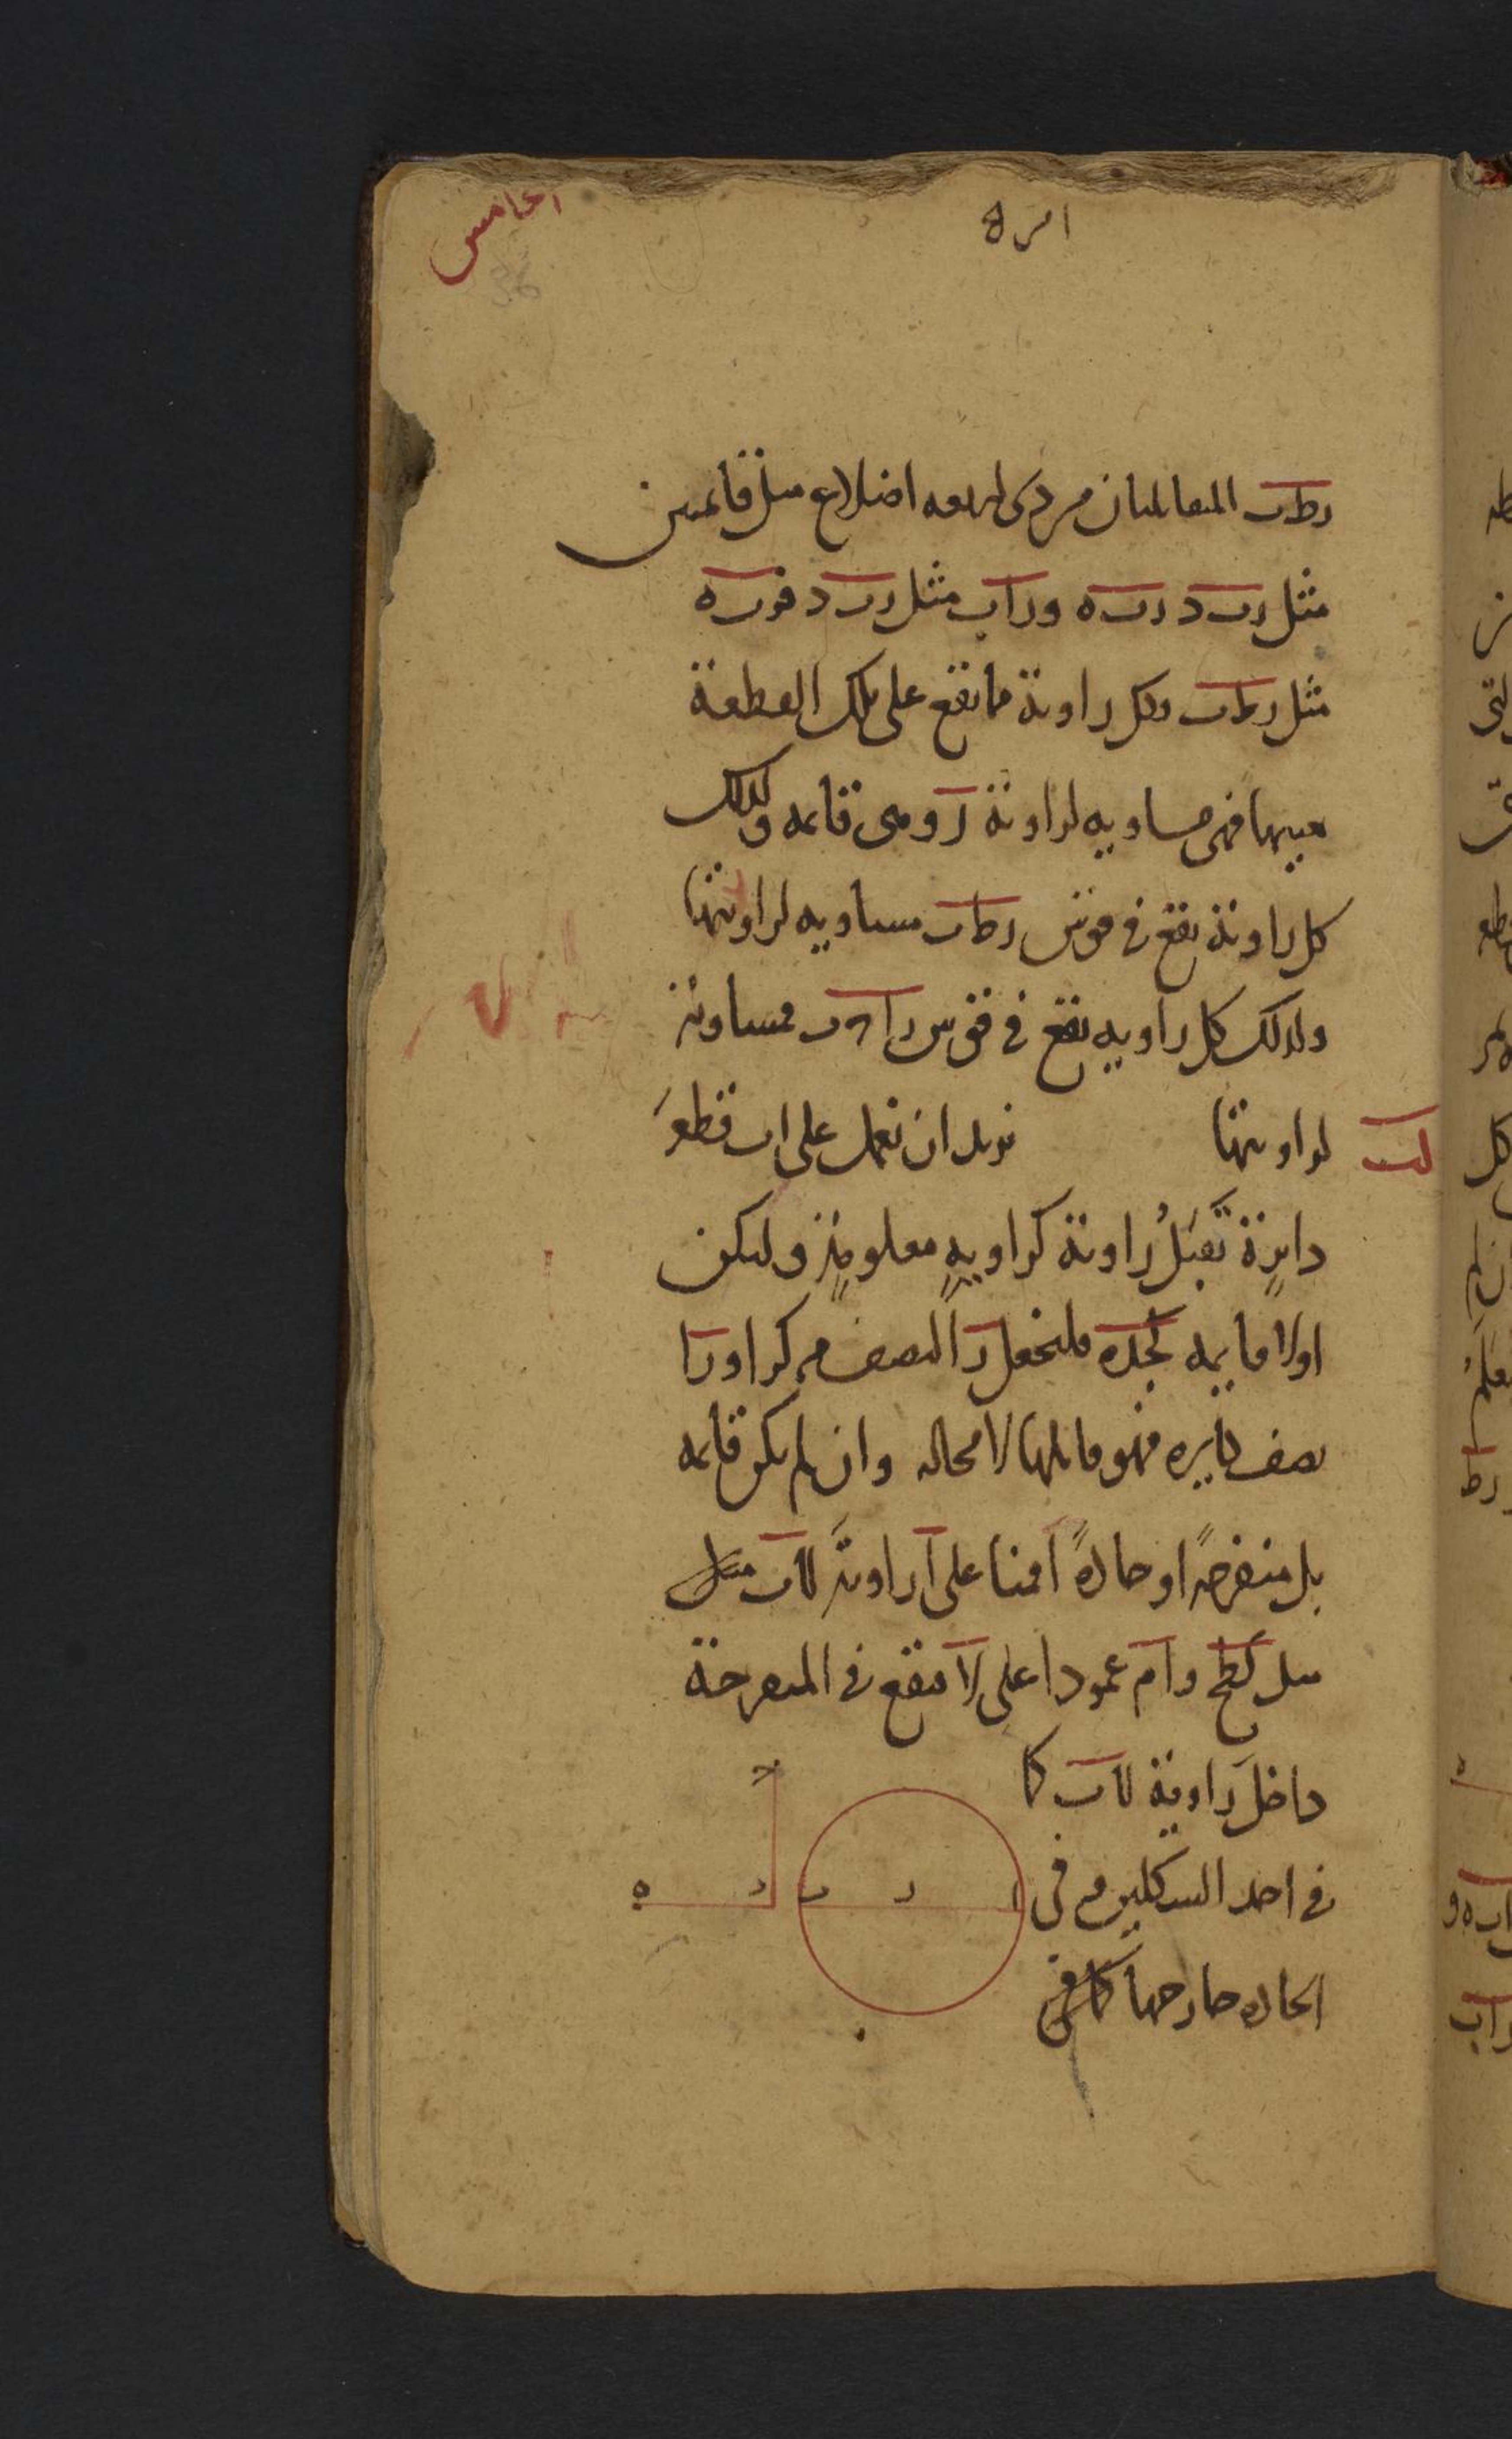 الخامس
36
رطب المتقابلتان من ذى اربعه اضلاع مثل قائمتين
مثل ربد ربه وراب مثل ربد فربه
مثل رطب وكل زاوية مما يقع على تلك القطعة
فيها فهى مساويه لزاوية ر وهى قائمه وكذلك
كل زاوية يقع فى قوس رطب مساويه لزاويتها
وكذلك كل زاويه يقع فى قوس راب مساوية
لزاويتها نريد ان نعمل على اب قطعة
لب
دايرة تقبل زاوية كزاوية معلومة وليكن
اولا قايمه كجده فلنجعل ر المنصف مركزا ورا
نصف دايره فهو قابلها لا محاله وان لم يكن قايمه
بل منفرجة او حادة اقمنا على ا زاوية لاب مثل
مثل كطح وام عمودا على لا فيقع فى المنفرجة
داخل زاوية لاب كا
فى احد الشكلين وفى
الحاده خارجها كما فى
ه د ب ر ا